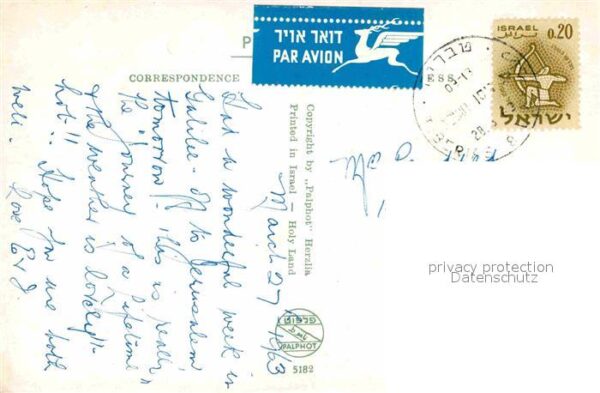 דואר אויר
PAR AVION
ISRAEL 0.20
ישראל
P
CORRESPONDENCE
ESS
March 27
Had a wonderful week in
Galilee - off to Jerusalem
tomorrow! This is really
the "journey of a lifetime"
& the weather is lovely -
hot!! Hope you are both
well.
Love
Copyright by „Palphot" Herzlia
Printed in Israel — Holy Land
PALPHOT
5182
privacy protection
Datenschutz